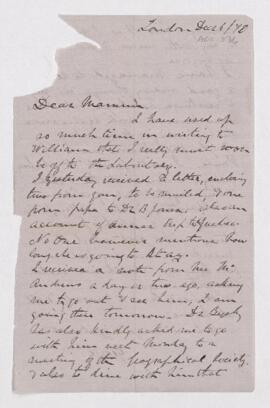 London Dec 6/70
Dear Mamma
I have used up
so much time in writing to
William that I really must soon
be off to the Laboratory.
I yesterday received 2 letters, enclosing
two from you, to be mailed, & one
from papa to Dr B Jones, also an
account of annual trip to Quebec
No one however mentions how
long he is going to stay.
I received a note from Mr Th.
Andrews a day or two ago, asking
me to go out & see him, I am
going there tomorrow. Dr Bigsby
has also kindly asked me to go
with him next Monday to a
meeting of the Geographical Society
& also to dine with him that